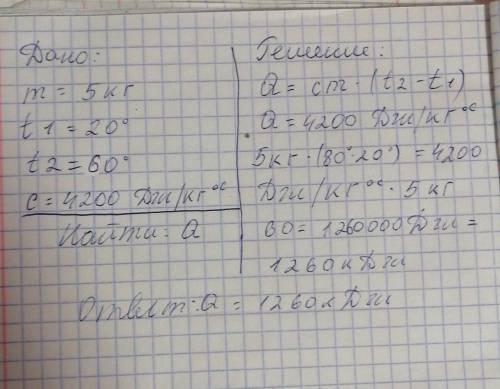 Дано:
m = 5 кг
t1 = 20°
t2 = 60°
c = 4200 Дж/кг °С
Найти: Q
Решение:
Q = cm · (t2 - t1)
Q = 4200 Дж/кг °С
5кг · (80° 20°) = 4200
Дж/кг °С · 5 кг
60 = 1260000 Дж =
1260 кДж
Ответ: Q = 1260 кДж